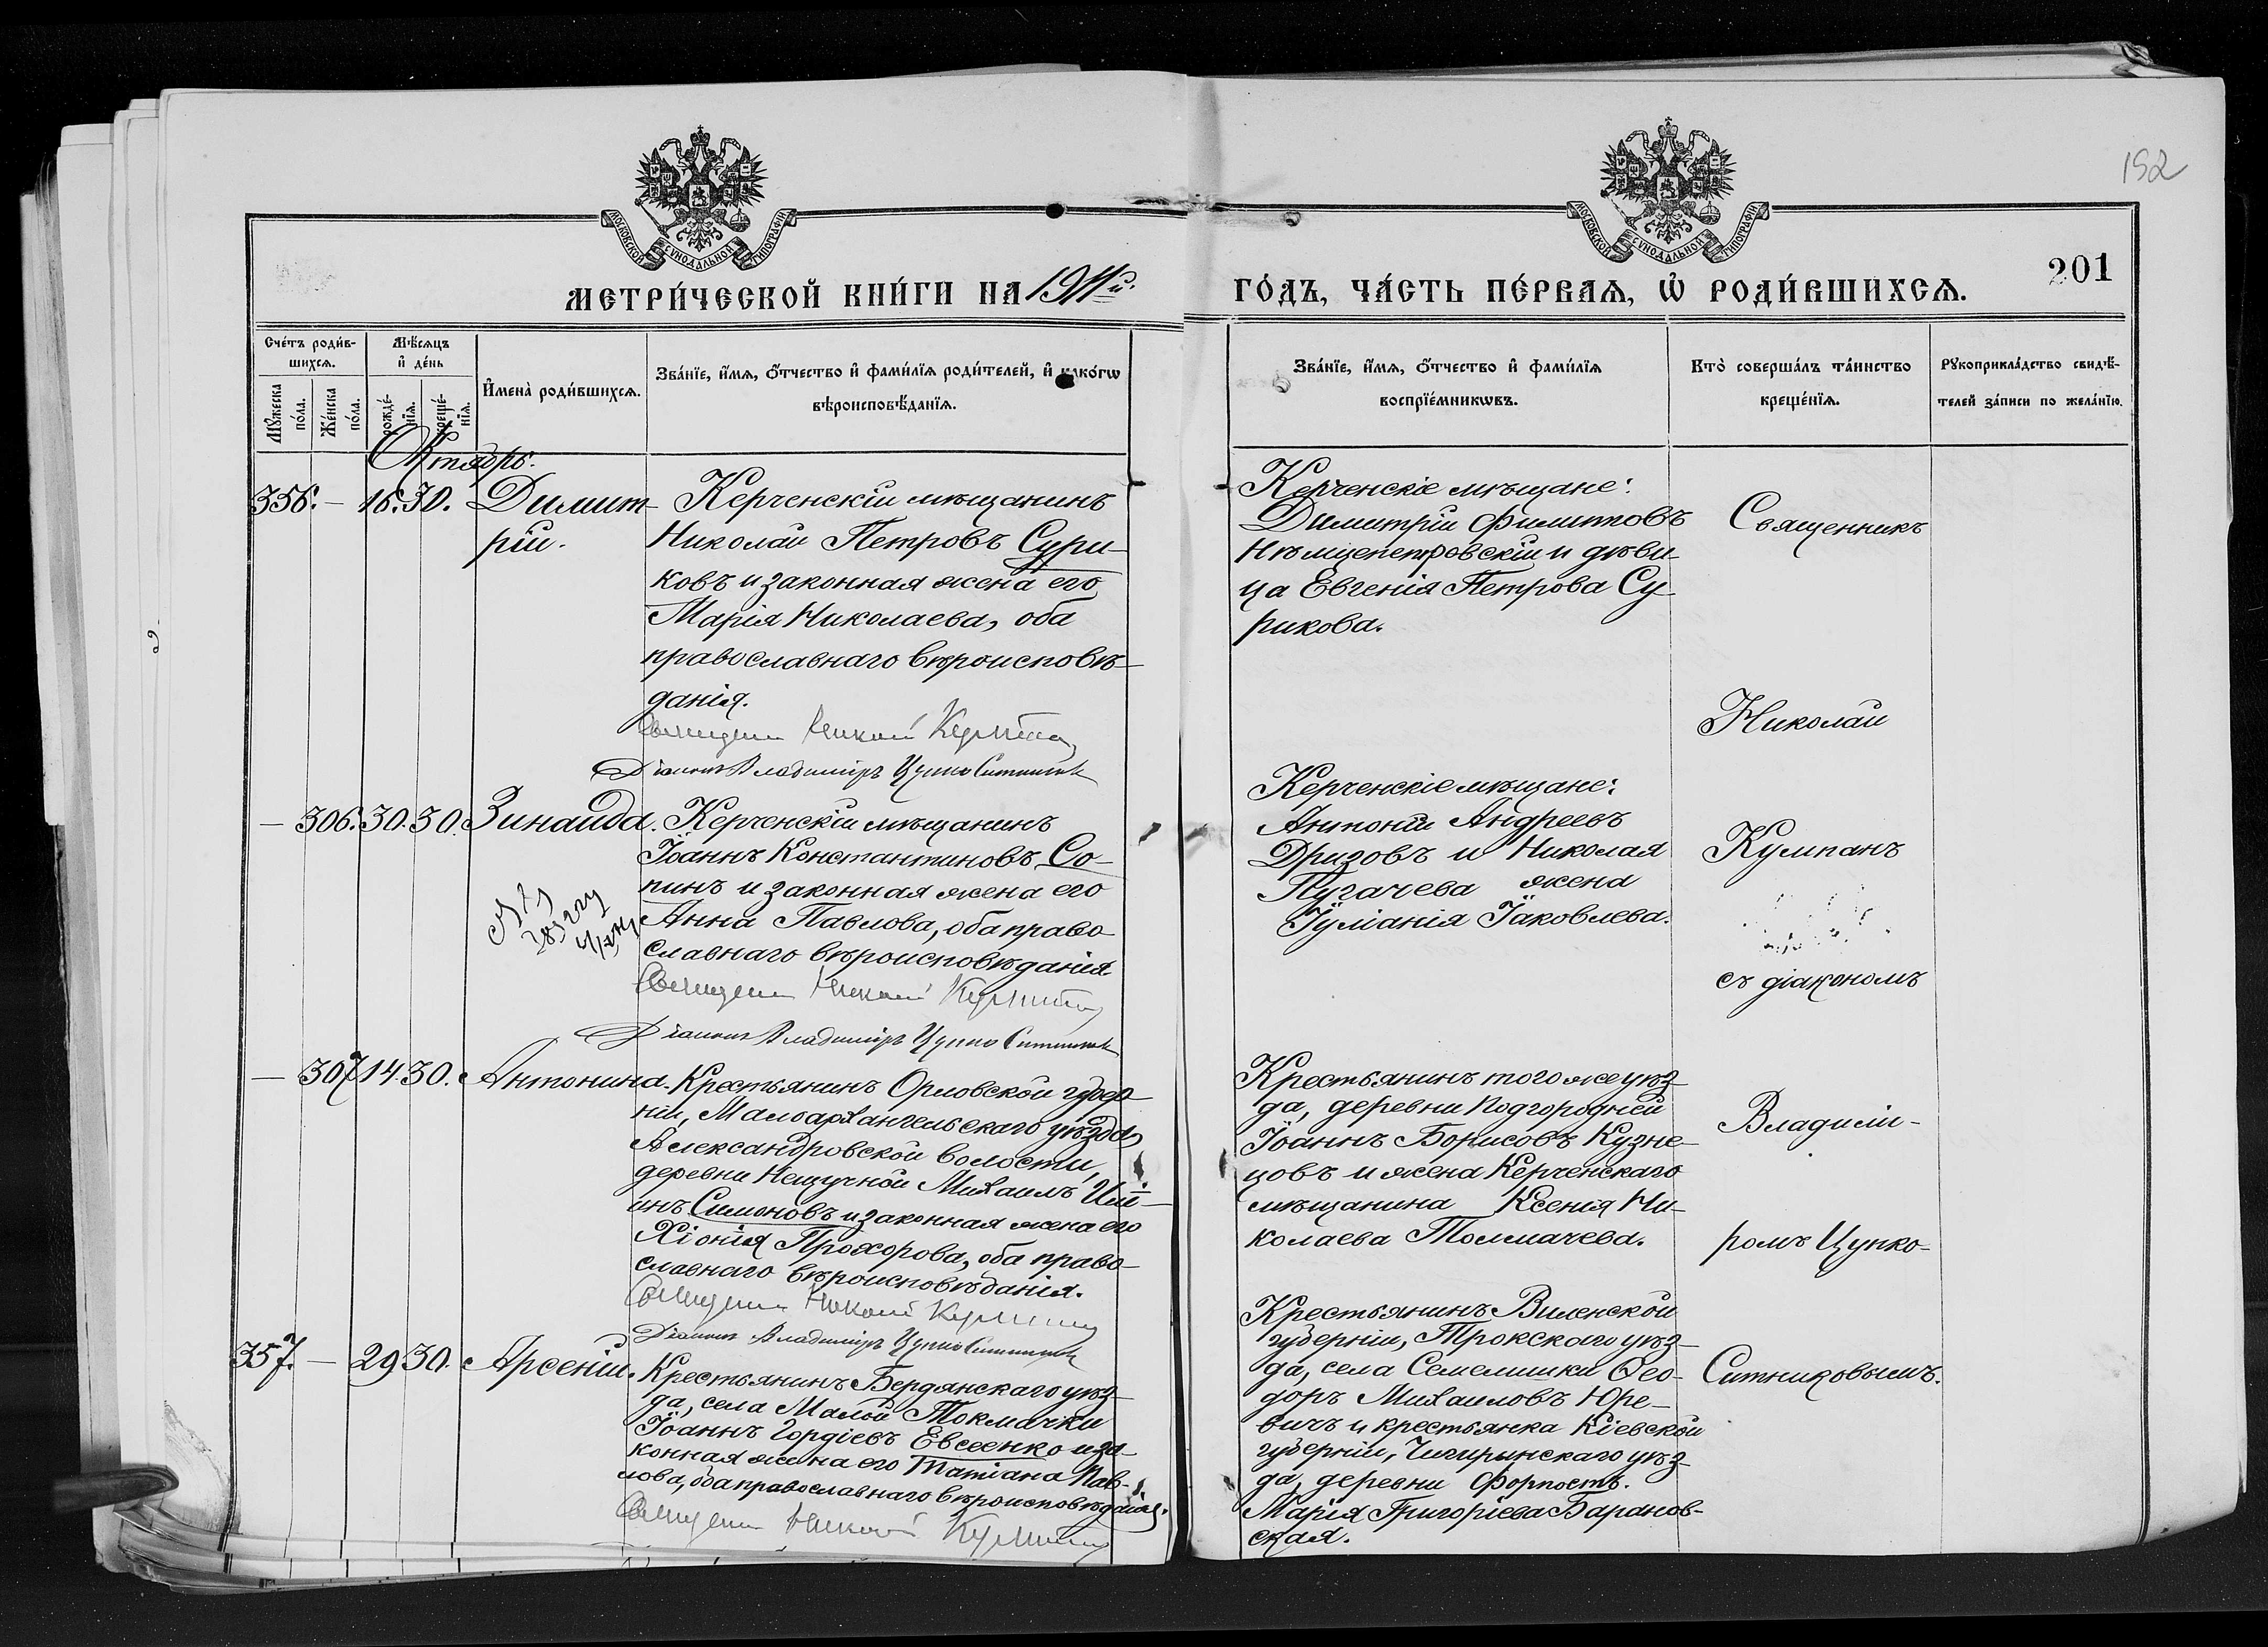 192
МОСКОВСКОЙ СУНОДАЛЬНОЙ ТИПОГРАФІИ
МОСКОВСКОЙ СУНОДАЛЬНОЙ ТИПОГРАФІИ
201
МЕТРИ́ЧЕСКОЙ КНИ́ГИ НА 1911й.
ГО́ДЪ, ЧА́СТЬ ПЕ́РВАѦ, Ѡ҆ РОДИ́ВШИХСѦ.
Сче́тъ роди́в-
шихсѧ.
Мѹ́жеска по́ла.
Же́нска по́ла.
Мѣ́сѧцъ
и҆ де́нь
рожде́-
нїѧ.
креще́-
нїѧ.
И҆мена̀ роди́вшихсѧ.
Зва́нїе, и҆́мѧ, ѻ҆́тчество и҆ фами́лїѧ роди́телей, и҆ како́гѡ
вѣроисповѣ́данїѧ.
Зва́нїе, и҆́мѧ, ѻ҆́тчество и҆ фами́лїѧ
воспрїе́мникѡвъ.
Кто̀ соверша́лъ та́инство
креще́нїѧ.
Рѹкоприкла́дство свидѣ́-
телей за́писи по жела́нїю.
Октябрь.
356. – 16. 30. Димит-
рій.
Керченскій мѣщанинъ
Николай Петровъ Сури-
ковъ и законная жена его
Марія Николаева, оба
православнаго вѣроисповѣ-
данія.
Священ Николай Кумпан
Діаконъ Владиміръ Цупко Ситников
Керченскіе мѣщане:
Димитрій Филипповъ
Нѣмцепетровскій и дѣви-
ца Евгенія Петрова Су-
рикова.
Священникъ
Николай
Кумпанъ
съ діакономъ
Владимі-
ромъ Цупко-
Ситниковымъ.
– 306. 30. 30. Зинаида.
Керченскій мѣщанинъ
Іоаннъ Константиновъ Со-
пинъ и законная жена его
Анна Павлова, оба право-
славнаго вѣроисповѣданія.
Священ Николай Кумпан
Діаконъ Владиміръ Цупко Ситников
Керченскіе мѣщане:
Антоній Андреевъ
Дризовъ и Николая
Пугачева жена
Іуліанія Іаковлева.
– 307 14. 30. Антонина.
Крестьянинъ Орловской губер-
ніи, Малоархангельскаго уѣзда,
Александровской волости,
деревни Нещучной Михаилъ Иль-
инъ Симоновъ и законная жена его
Хіонія Прохорова, оба право-
славнаго вѣроисповѣданія.
Священ Николай Кумпан
Діаконъ Владиміръ Цупко Ситников
Крестьянинъ того же уѣз-
да, деревни Подгородней
Іоаннъ Борисовъ Кузне-
цовъ и жена Керченскаго
мѣщанина Ксенія Ни-
колаева Толмачева.
357. – 29 30. Арсеній.
Крестьянинъ Бердянскаго уѣз-
да, села Малой Токмачки
Іоаннъ Гордіевъ Евсеенко и за-
конная жена его Татіана Пав-
лова, оба православнаго вѣроисповѣданія.
Священ Николай Кумпан
Крестьянинъ Виленской
губерніи, Трокскаго уѣз-
да, села Семелишки Ѳео-
доръ Михаиловъ Юре-
вичъ и крестьянка Кіевской
губерніи, Чигиринскаго уѣз-
да, деревни Форпостъ.
Марія Григоріева Баранов-
ская.